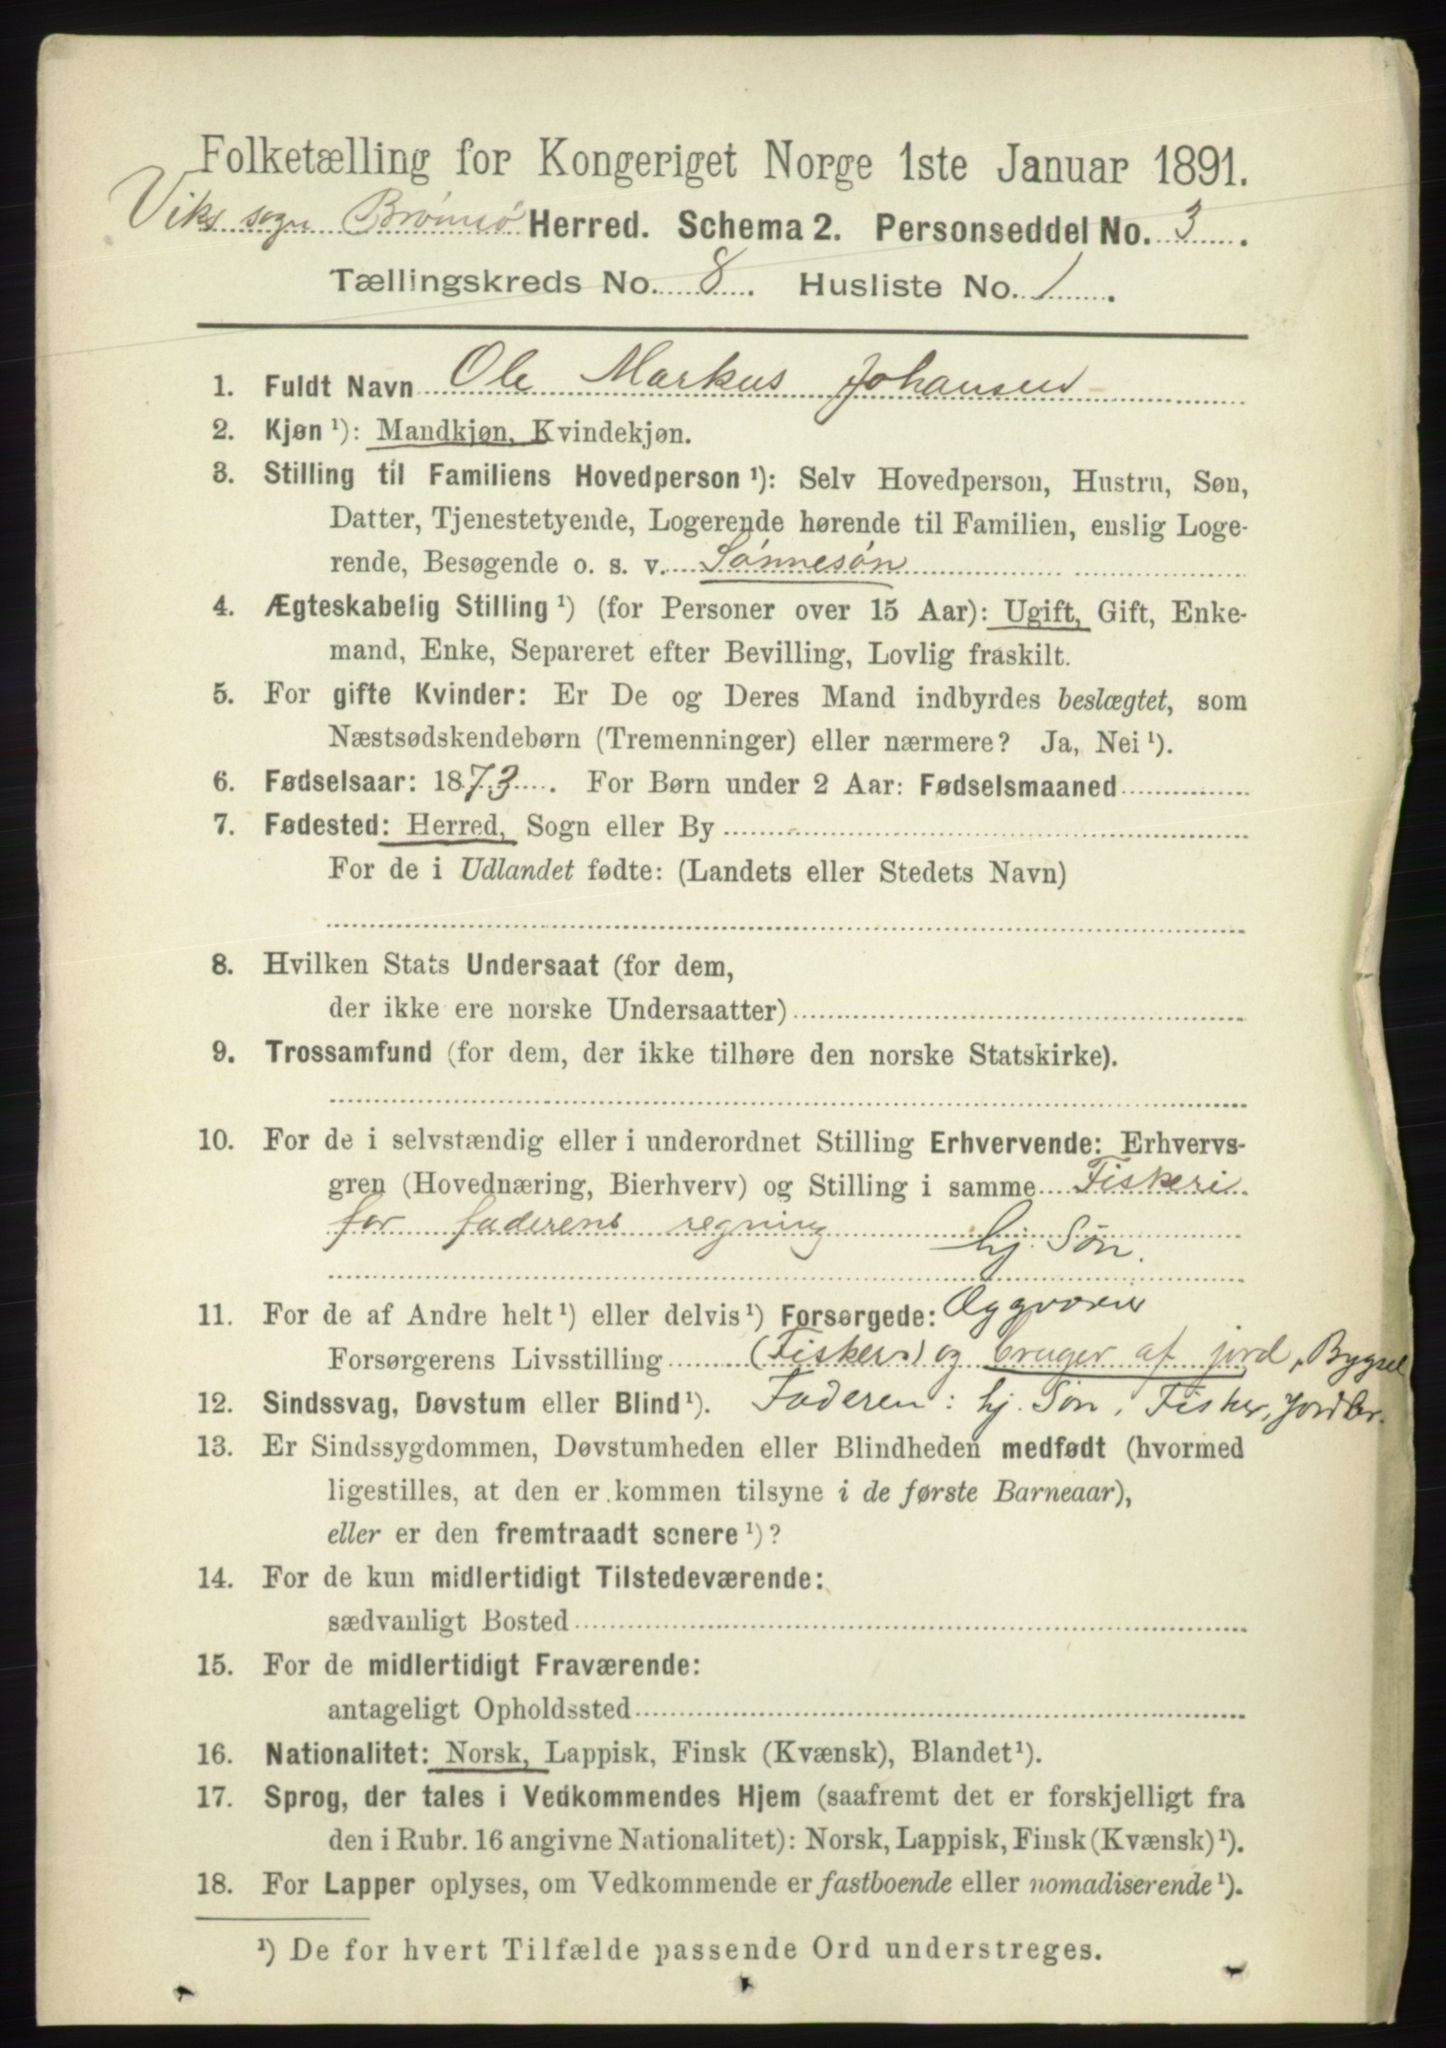 Folketælling for Kongeriget Norge 1ste Januar 1891.
Viks sogn Brønnø Herred. Schema 2. Personseddel No. 3.
Tællingskreds No. 8. Husliste No. 1.
1. Fuldt Navn Ole Markus Johansen
2. Kjøn ¹): Mandkjøn, Kvindekjøn.
3. Stilling til Familiens Hovedperson ¹): Selv Hovedperson, Hustru, Søn,
Datter, Tjenestetyende, Logerende hørende til Familien, enslig Loge-
rende, Besøgende o. s. v. Sønnesøn
4. Ægteskabelig Stilling ¹) (for Personer over 15 Aar): Ugift, Gift, Enke-
mand, Enke, Separeret efter Bevilling, Lovlig fraskilt.
5. For gifte Kvinder: Er De og Deres Mand indbyrdes beslægtet, som
Næstsødskendebørn (Tremenninger) eller nærmere? Ja, Nei ¹).
6. Fødselsaar: 1873. For Børn under 2 Aar: Fødselsmaaned
7. Fødested: Herred, Sogn eller By
For de i Udlandet fødte: (Landets eller Stedets Navn)
8. Hvilken Stats Undersaat (for dem,
der ikke ere norske Undersaatter)
9. Trossamfund (for dem, der ikke tilhøre den norske Statskirke).
10. For de i selvstændig eller i underordnet Stilling Erhvervende: Erhvervs-
gren (Hovednæring, Bierhverv) og Stilling i samme Fiskeri
for faderens regning hj. Søn.
11. For de af Andre helt ¹) eller delvis ¹) Forsørgede:
Forsørgerens Livsstilling (Fisker) og bruger af jord, Bygsel
12. Sindssvag, Døvstum eller Blind ¹). Faderen: hj. Søn, Fisker, Jordbr.
13. Er Sindssygdommen, Døvstumheden eller Blindheden medfødt (hvormed
ligestilles, at den er kommen tilsyne i de første Barneaar),
eller er den fremtraadt senere ¹)?
14. For de kun midlertidigt Tilstedeværende:
sædvanligt Bosted
15. For de midlertidigt Fraværende:
antageligt Opholdssted
16. Nationalitet: Norsk, Lappisk, Finsk (Kvænsk), Blandet ¹).
17. Sprog, der tales i Vedkommendes Hjem (saafremt det er forskjelligt fra
den i Rubr. 16 angivne Nationalitet): Norsk, Lappisk, Finsk (Kvænsk) ¹).
18. For Lapper oplyses, om Vedkommende er fastboende eller nomadiserende ¹).
¹) De for hvert Tilfælde passende Ord understreges.